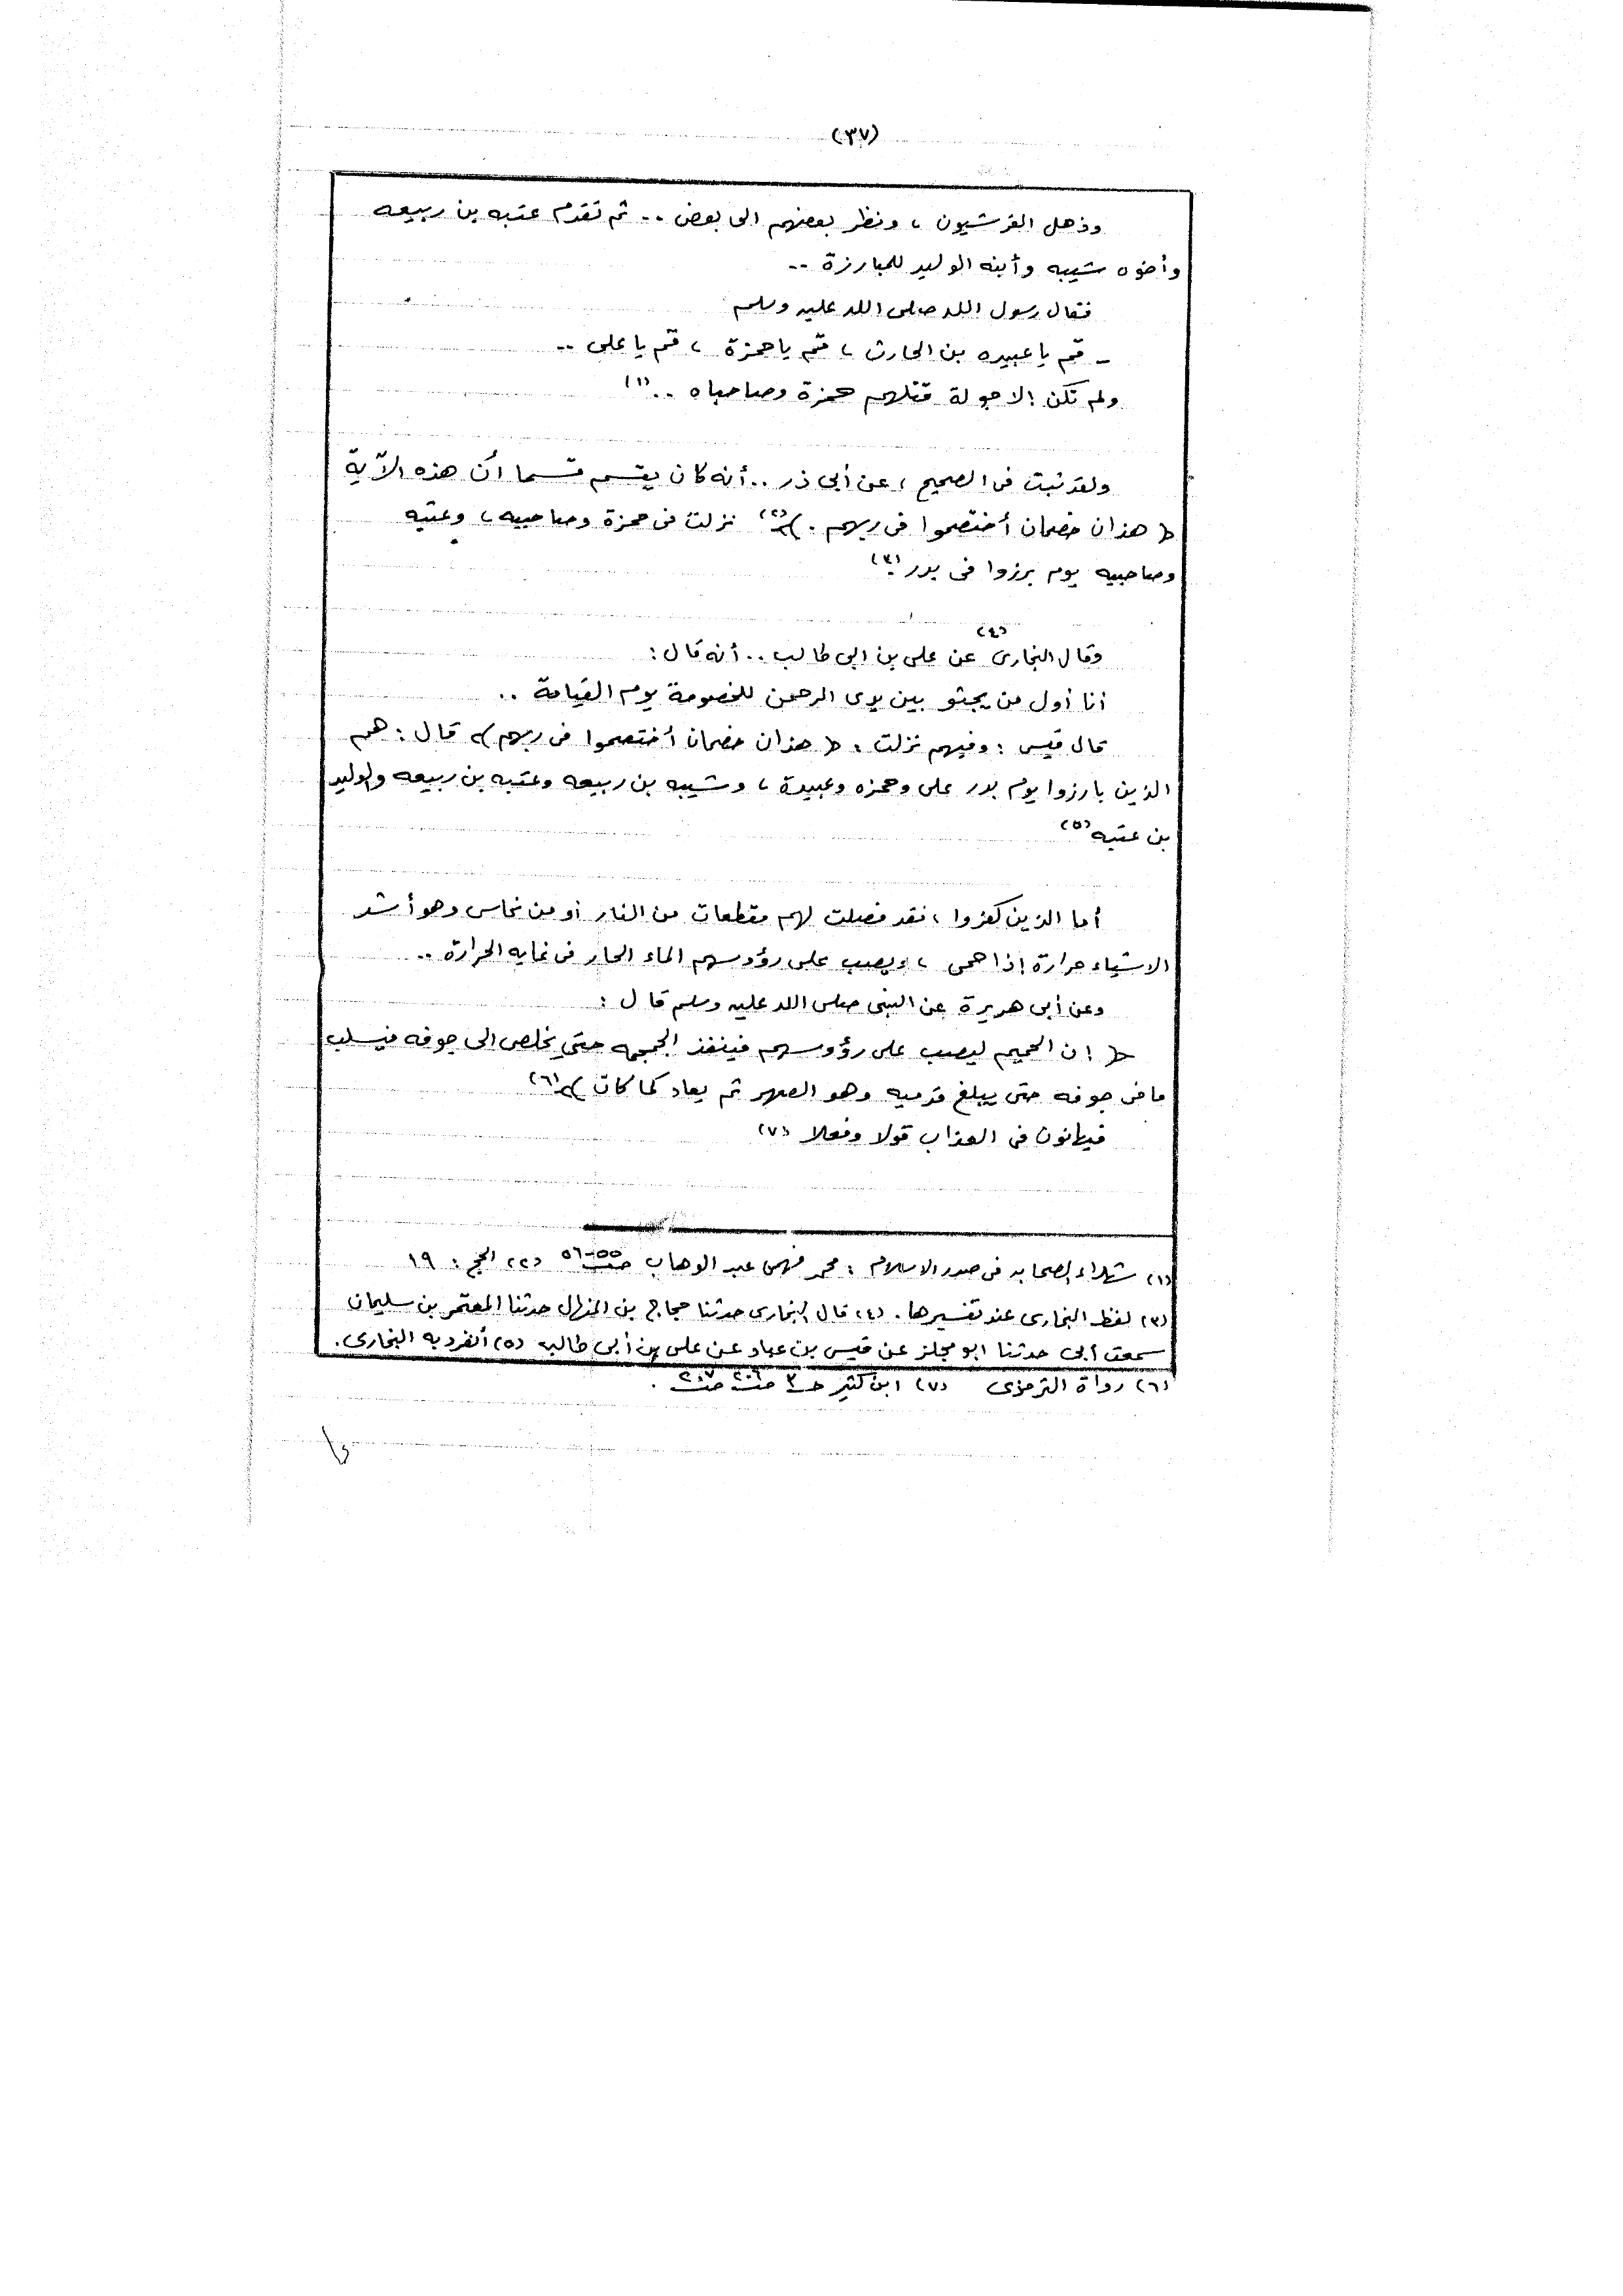 (٣٧)
وذهل القرشيون ، ونظر بعضهم الى بعض .. ثم تقدم عتبه بن ربيعه
وأخوه شيبه وأبنه الوليد للمبارزة ..
فقال رسول الله صلى الله عليه وسلم
ـ قم يا عبيده بن الحارث ، قم يا حمزة ، قم يا على ..
ولم تكن إلا جولة قتلهم حمزة وصاحباه .. (١)
ولقد ثبت فى الصحيح ، عن أبى ذر .. أنه كان يقسم قسما أن هذه الآية
( هذان خصمان أختصموا فى ربهم . ) (٢) نزلت فى حمزة وصاحبيه ، وعتبه
وصاحبيه يوم برزوا فى بدر . (٣)
وقال البخارى (٤) عن على بن ابى طالب .. أنه قال :
أنا أول من يجثو بين يدى الرحمن للخصومة يوم القيامة ..
قال قيس : وفيهم نزلت : ( هذان خصمان أختصموا فى ربهم ) قال : هم
الذين بارزوا يوم بدر على وحمزه وعبيدة ، وشيبه بن ربيعه وعتبه بن ربيعه والوليد
بن عتبه (٥)
أما الذين كفروا ، فقد فصلت لهم مقطعات من النار أو من نحاس وهو أشد
الاشياء حرارة إذا حمى ، ويصب على رؤوسهم الماء الحار فى غايه الحرارة ..
وعن أبى هريرة عن النبى صلى الله عليه وسلم قال :
( إن الحميم ليصب على رؤوسهم فينفذ الجمجمه حتى يخلص الى جوفه فيسلب
ما فى جوفه حتى يبلغ قدميه وهو الصهر ثم يعاد كما كان ) (٦)
فيهانون فى العذاب قولا وفعلا (٧)
(١) شهداء الصحابه فى صدر الاسلام : محمد فهمى عبد الوهاب صـ ٥٥-٥٦ (٢) الحج : ١٩
(٣) لفظ البخارى عند تفسيرها . (٤) قال البخارى حدثنا حجاج بن المنهال حدثنا المعتمر بن سليمان
سمعت أبى حدثنا ابو مجلز عن قيس بن عباد عن على بن أبى طالب (٥) أنفرد به البخارى .
(٦) رواة الترمذى (٧) ابن كثير حـ ٣ صـ ٢٠٦ صـ ٢٠٧ .